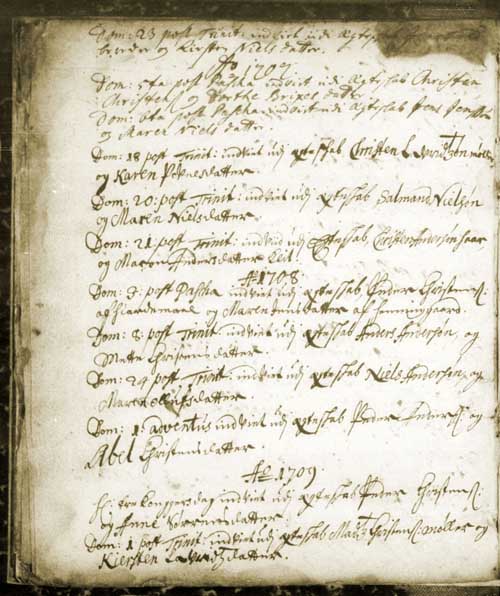 Dom: 23 post Trinit: indviet udi Egteskab
og Kirsten Niels datter.
Ao 1707
Dom: 5ta post Pascha indviet udi Egteskab Christen
Christens: og Dorthe datter
Dom: 6ta post Pascha indviet udi Egteskab Jens Jensen
og Maren Niels datter.
Dom: 18 post Trinit: indviet udj ægteskab Christen Lauridtzøn møller
og Karen Pedersdatter
Dom: 20: post Trinit: indviet udj ægteskab Salmand Nielsøn
og Maren Nielsdatter.
Dom: 21 post Trinit: indviet udj Egteskab, Christen Andersøn
og Maren Andersdatter
Ao 1708
Dom: 3: post Pascha indviet udj ægteskab Peder Christens:
af og Maren Jensdatter af
Dom: 8: post Trinit: indviet udj ægteskab Anders Andersøn, og
Mette Christensdatter.
Dom: 24 post Trinit: indviet udj ægteskab Niels Andersøn, og
Maren datter.
Dom: 1 adventus indviet udj ægteskab Peder Anders: og
Abel Christensdatter.
Ao 1709
H: tre kongersdag indviet udj ægteskab Peder Christens:
og Anne Sørrensdatter
Dom: 1 post Trinit: indviet udj ægteskab Christens: møller og
Kiersten Lauridtzdatter.